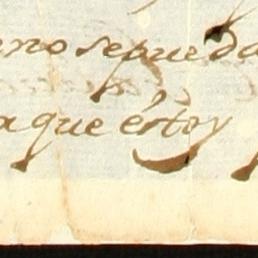 no se pueda
a que éstoy